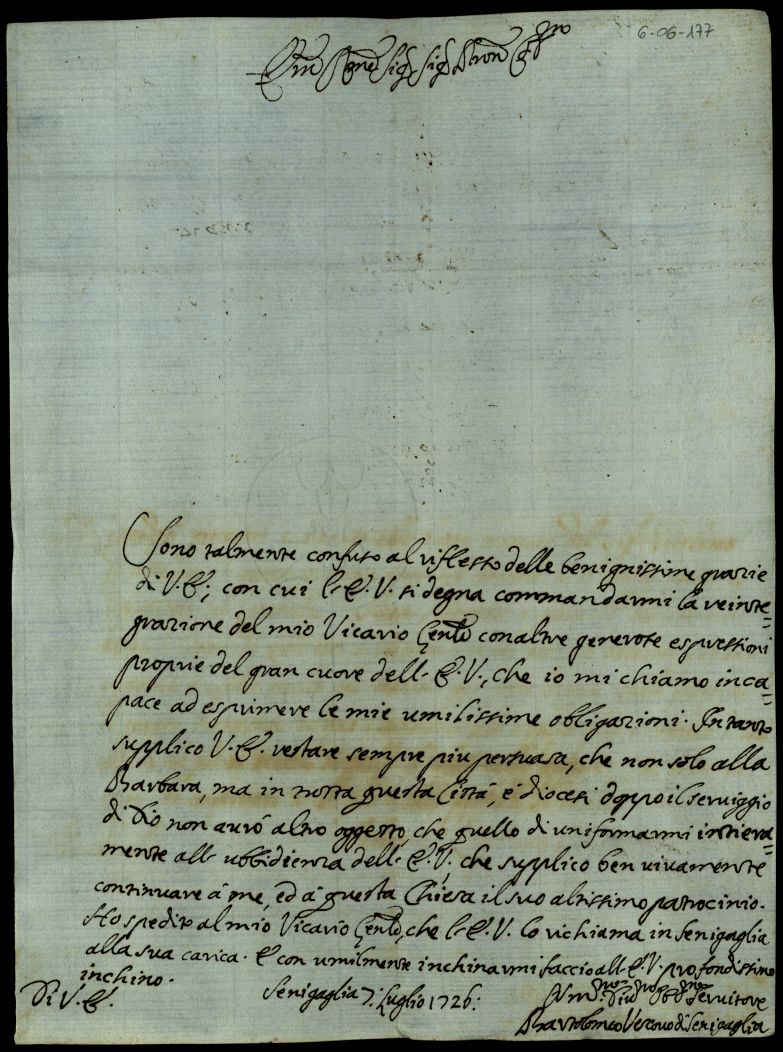 6-06-177
Em.o Pne Sig.r Sig.r Pron Col.mo
Sono talmente confuso al riflesso delle benignissime grazie
di V.E., con cui l'E.V. si degna commandarmi la reinte=
grazione del mio Vicario Gen̅le con altre generose espressioni
proprie del gran cuore dell'E.V., che io mi chiamo inca=
pace ad esprimere le mie umilissime obligazioni. In tanto
supplico V.E. restare sempre piu persuasa, che non solo alla
Barbara, ma in tutta questa Città, e diocesi doppo il serviggio
di Dio non avrò altro oggetto, che quello di uniformarmi intiera=
mente all'ubbidienza dell'E.V., che supplico ben vivamente
continuare à me, ed à questa Chiesa il suo altissimo patrocinio.
Ho spedito al mio Vicario Gen̅le, che l'E.V. lo richiama in Senigaglia
alla sua carica. E con umilmente inchinarmi faccio all'E.V. profondissimo
inchino.
Di V.E. Senigaglia 7: Luglio 1726:
Um.mo Div.mo Obb.mo Servitore
Bartolomeo Vescovo di Senigaglia